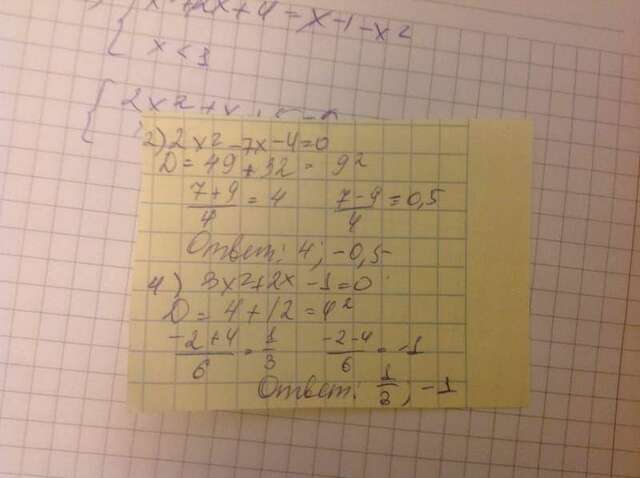 x² + 2x + 4 = x - 1 - x²
x < 1
2x² + x
2) 2x² - 7x - 4 = 0
D = 49 + 32 = 9²
(7+9)/4 = 4 (7-9)/4 = 0,5
Ответ: 4; -0,5
4) 3x² + 2x - 1 = 0
D = 4 + 12 = 4²
(-2+4)/6 = 1/3 (-2-4)/6 = -1
Ответ: 1/3; -1